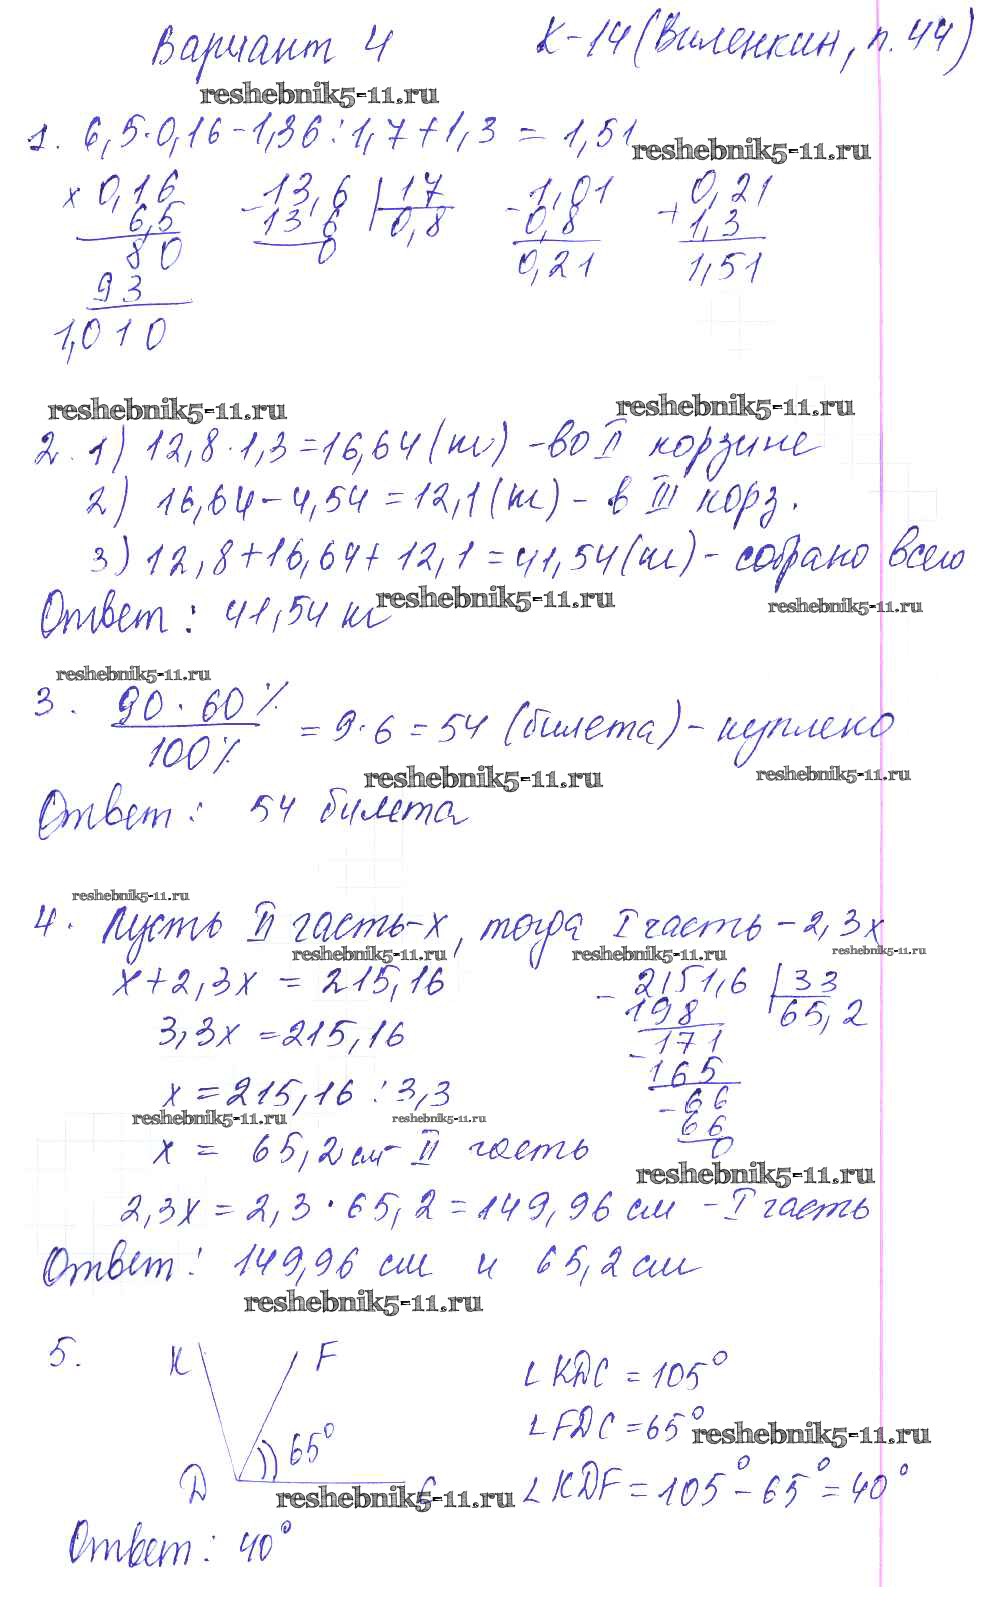 Вариант 4 К-14 (Виленкин, п. 44)
reshebnik5-11.ru
1. 6,5·0,16-1,36:1,7+1,3 = 1,51
reshebnik5-11.ru
× 0,16
6,5
80
93
1,010
- 13,6 | 17
13 6 0,8
0
- 1,01
0,8
0,21
+ 0,21
1,3
1,51
reshebnik5-11.ru reshebnik5-11.ru
2. 1) 12,8·1,3=16,64 (кг) -во II корзине
2) 16,64-4,54=12,1(кг) - в III корз.
3) 12,8+16,64+12,1=41,54(кг) - собрано всего
Ответ: 41,54 кг
reshebnik5-11.ru reshebnik5-11.ru
reshebnik5-11.ru
3. 90·60% / 100% = 9·6=54 (билета) - куплено
reshebnik5-11.ru reshebnik5-11.ru
Ответ: 54 билета
reshebnik5-11.ru
4. Пусть II часть-x, тогда I часть - 2,3x
reshebnik5-11.ru reshebnik5-11.ru reshebnik5-11.ru
x+2,3x = 215,16
3,3x =215,16
x =215,16 : 3,3
reshebnik5-11.ru reshebnik5-11.ru
x = 65,2см- II часть
- 2151,6 | 33
198 65,2
- 171
165
- 66
66
0
reshebnik5-11.ru
2,3x = 2,3·65,2=149,96 см - I часть
Ответ: 149,96 см и 65,2 см
reshebnik5-11.ru
5.
K F
65°
D C
reshebnik5-11.ru
∠KDC = 105°
∠FDC =65°
reshebnik5-11.ru
∠KDF=105°-65°=40°
Ответ: 40°